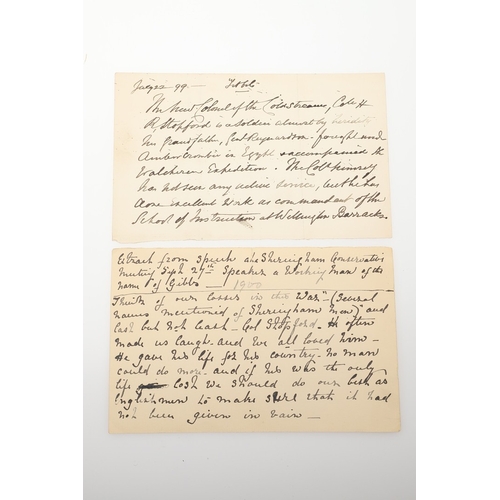 July 22 - 99 -
The New Colonel of the Coldstreams, Col. H
R Stopford is a soldier almost by heredity
his grandfather, Genl Reynardson - fought under
Abercrombie in Egypt & accompanied the
Walcheren Expedition. The Coll himself
has not seen any active service, but he has
done excellent work as commandant of the
School of Instruction at Wellington Barracks.
Extract from Speech at a Sheringham Conservative
Meeting Sept 27th Speaker a Working Man of the
name of Gibbs - 1900
Think of our losses in this War" - (Several
names mentioned of Sheringham Men) "and
last but not least - Col Stopford - He often
made us laugh - and we all loved him -
He gave his life for his country - no man
could do more - and if his was the only
life lost we should do our best as
Englishmen to make sure that it had
not been given in vain -